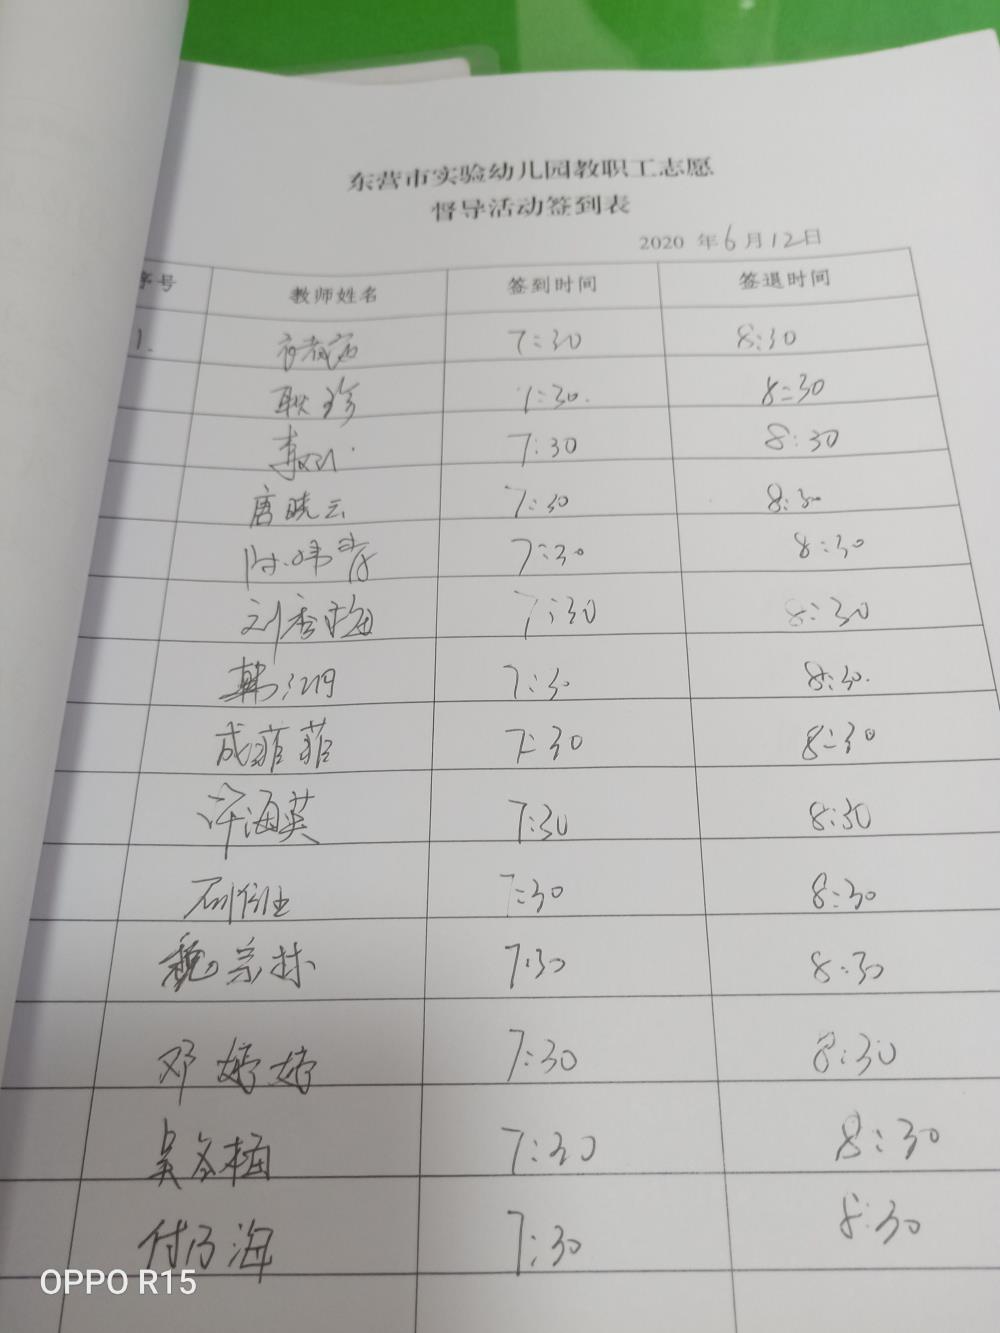 东营市实验幼儿园教职工志愿
督导活动签到表
2020 年6月12日
序号 教师姓名 签到时间 签退时间
1. 7:30 8:30
耿 珍 7:30. 8:30
李 7:30 8:30
唐晓云 7:30 8:30
陈 7:30 8:30
刘秀梅 7:30 8:30
韩 7:30 8:30.
成菲菲 7:30 8:30
许海英 7:30 8:30
7:30 8:30
魏宗林 7:30 8:30
邓婷婷 7:30 8:30
吴冬梅 7:30 8:30
付乃海 7:30 8:30
OPPO R15